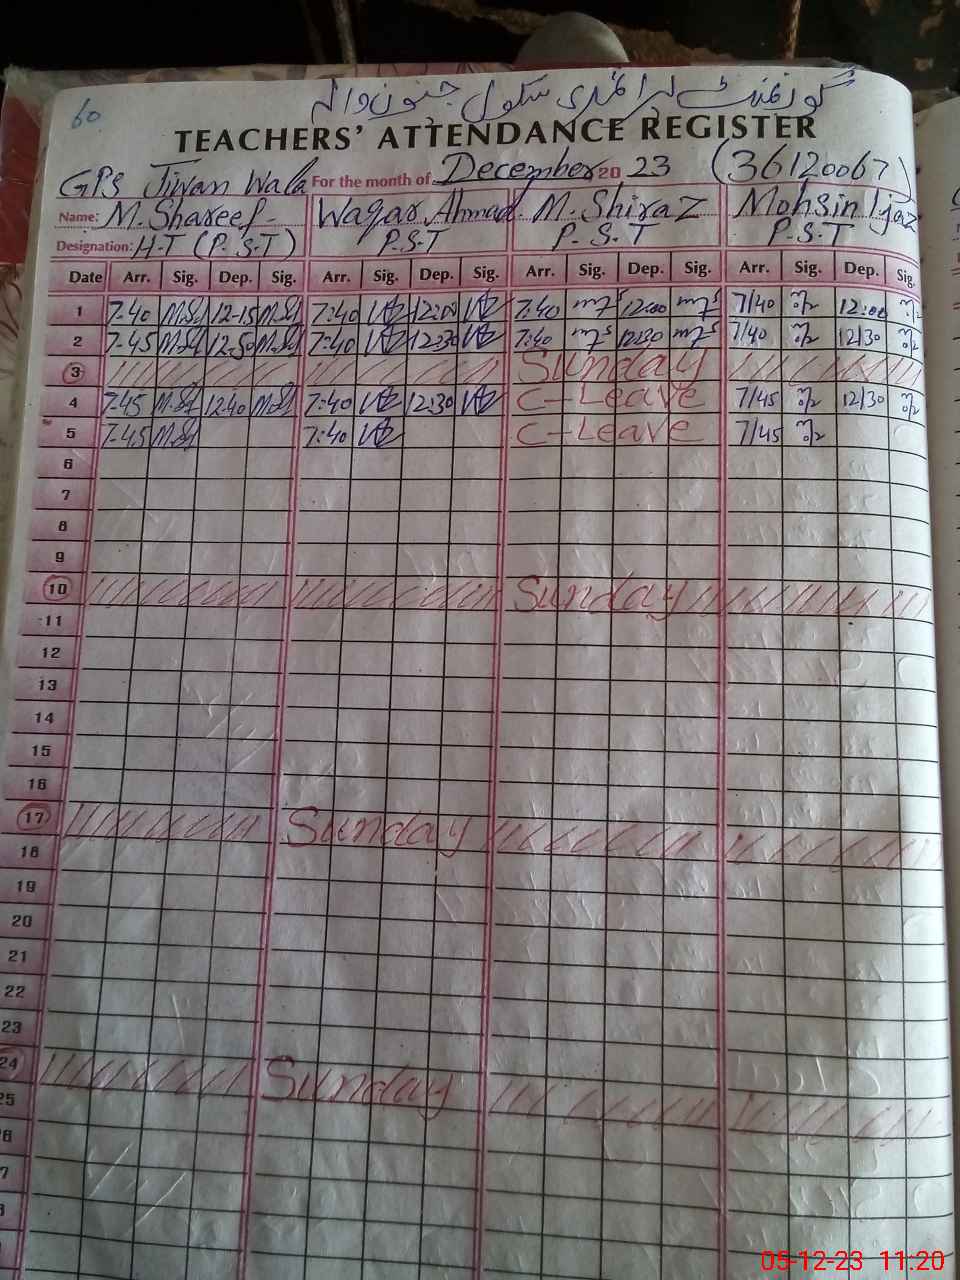 گورنمنٹ پرائمری سکول جیون والہ
60
TEACHERS' ATTENDANCE REGISTER
GPS Jiwan Wala For the month of December 20 23 (36120067)
Name: M. Shareef Waqar Ahmad M. Shiraz Mohsin Ijaz
Designation: H.T (P.S.T) P.S.T P.S.T P.S.T
Date Arr. Sig. Dep. Sig. Arr. Sig. Dep. Sig. Arr. Sig. Dep. Sig. Arr. Sig. Dep. Sig.
1 7:40 M.Sf 12-15 M.Sf 7:40 12:00 7:40 12:00 7/40 12:00
2 7:45 M.Sf 12-50 M.Sf 7:40 12:30 7:40 12:30 7/40 12/30
3 Sunday
4 7:45 M.Sf 12:40 M.Sf 7:40 12:30 C-Leave 7/45 12/30
5 7:45 M.Sf 7:40 C-Leave 7/45
6
7
8
9
10 Sunday
11
12
13
14
15
16
17 Sunday
18
19
20
21
22
23
24 Sunday
25
26
7
8
05-12-23 11:20